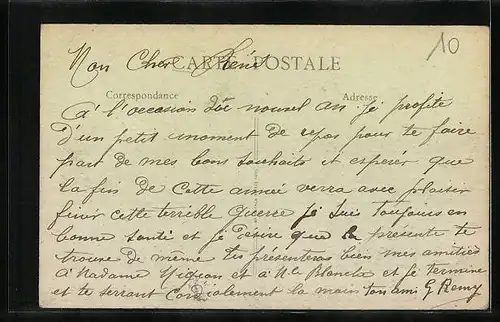 Mon Cher René
CARTE POSTALE
10
Correspondance
Adresse
a l'occasion du nouvel an je profite
d'un petit moment de repos pour te faire
part de mes bons souhaits et espérer que
la fin de cette année verra avec plaisir
finir cette terrible Guerre je suis toujours en
bonne santé et je désire que la présente te
trouve de même tu présenteras bien mes amitiés
a Madame Mignon et a Mlle Blanche et je termine
et te serrant Cordialement la main ton ami G Remy